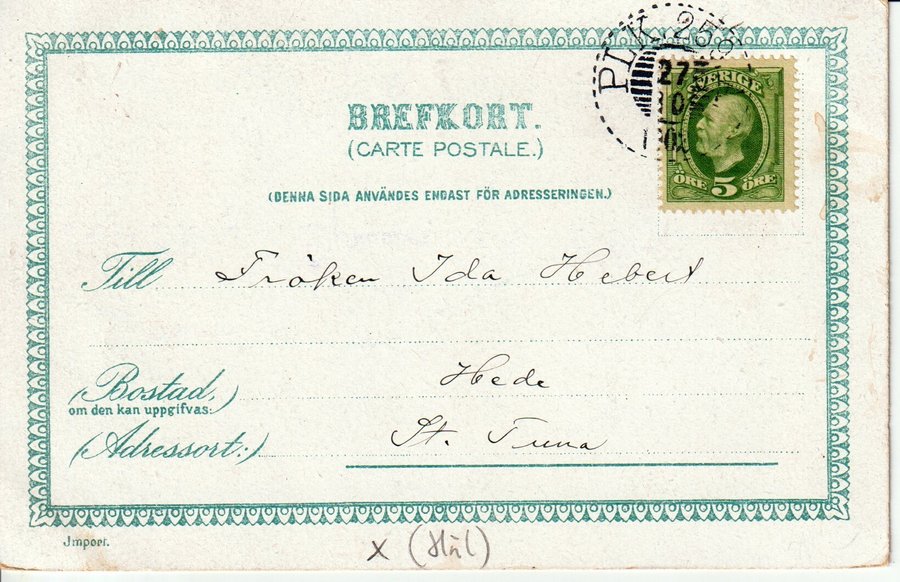 BREFKORT.
(CARTE POSTALE.)
(DENNA SIDA ANVÄNDES ENDAST FÖR ADRESSERINGEN.)
PLK 258
27
10
SVERIGE
ÖRE 5 ÖRE
Till Fröken Ida Hebert
(Bostad,) Hede
om den kan uppgifvas:
(Adressort:) St. Tuna
Import.
X